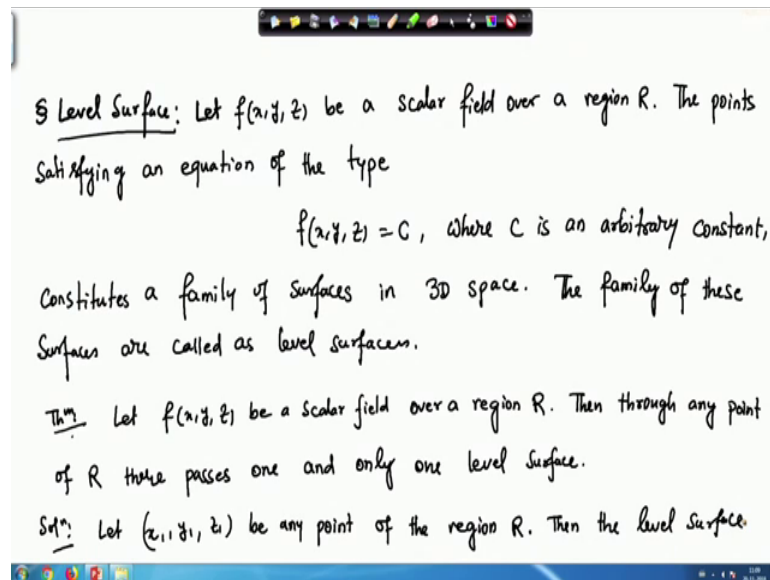 § Level Surface: Let f(x, y, z) be a scalar field over a region R. The points
Satisfying an equation of the type
f(x, y, z) = C, where C is an arbitrary constant,
Constitutes a family of surfaces in 3D space. The family of these
Surfaces are called as level surfaces.
Thm: Let f(x, y, z) be a scalar field over a region R. Then through any point
of R there passes one and only one level surface.
Solⁿ: Let (x₁, y₁, z₁) be any point of the region R. Then the level surface